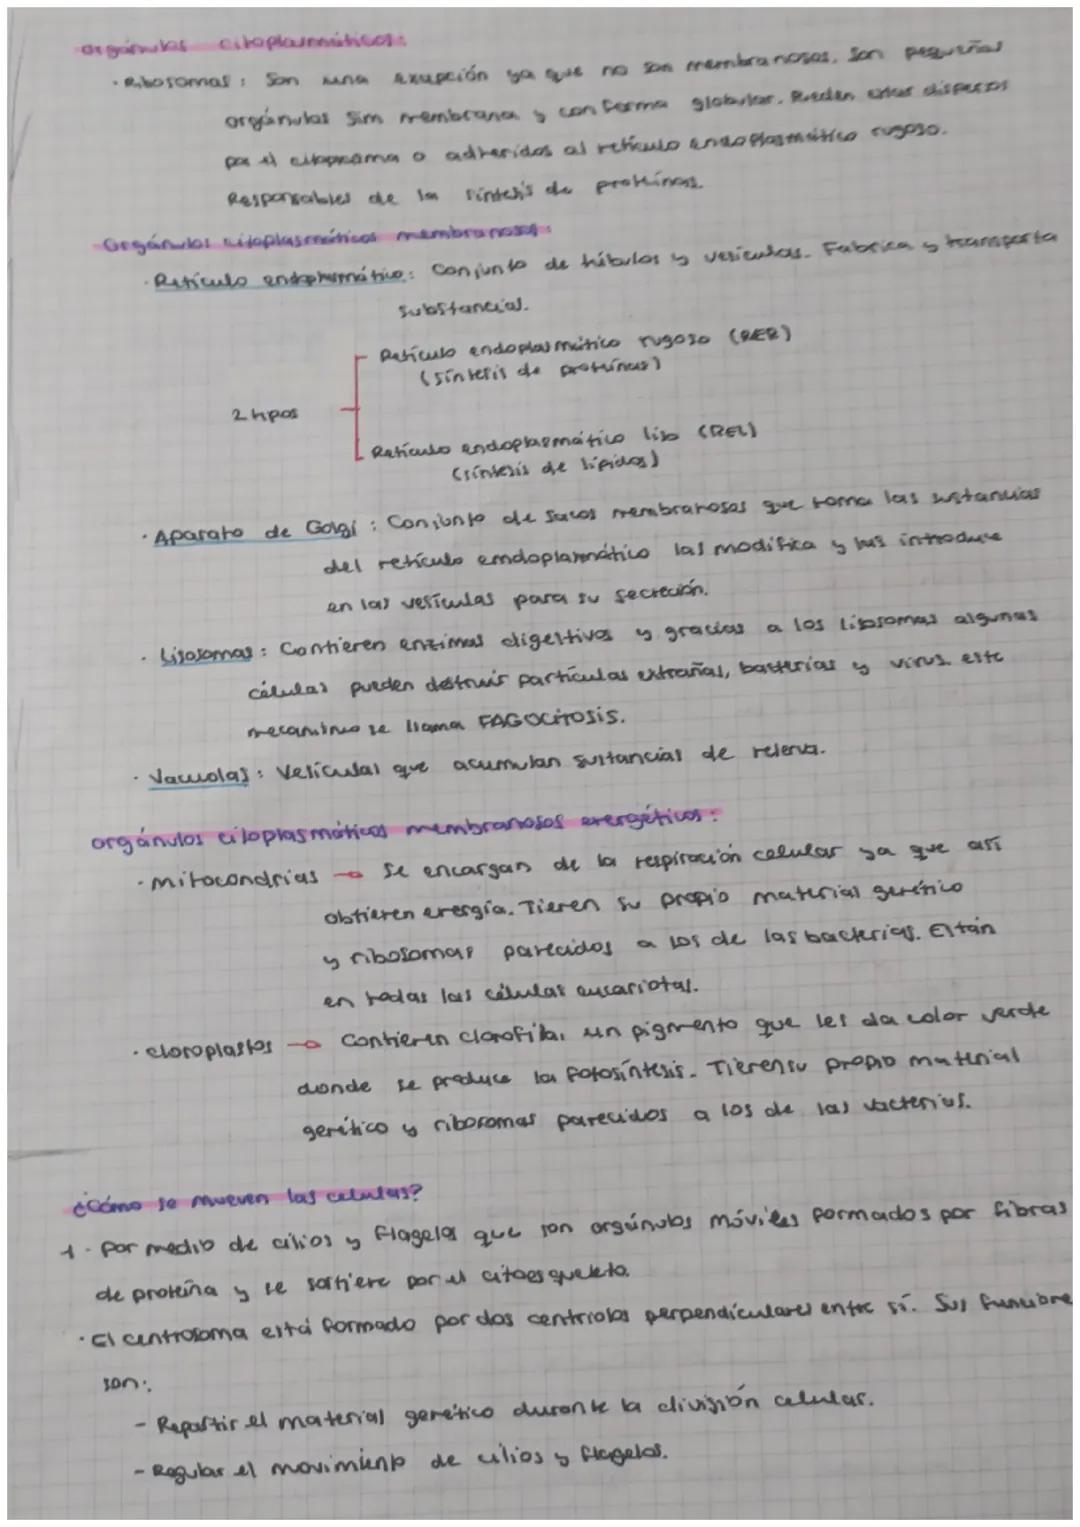 orgánulos citoplasmáticos:
· Ribosomas: Son una exepción ya que no son membranosas, son pequeñas
orgánulos sim membrana y con forma globular. Pueden estar dispersos
por el citoplasma o adheridos al retículo endoplasmático rugoso.
Responsables de la síntesis de proteínas.
Orgánulos citoplasmáticos membranosos:
· Retículo endoplasmático: Conjunto de túbulos y vesículas. Fabrica y transporta
substancias.
Retículo endoplasmático rugoso (RER)
(síntesis de proteínas)
2 tipos
Retículo endoplasmático liso (REL)
(síntesis de lípidos)
· Aparato de Golgi: Conjunto de sacos membranosos que toma las sustancias
del retículo emdoplasmático las modifica y las introduce
en las vesículas para su secreción.
· Lisosomas: Contienen enzimas digestivas y gracias a los lisosomas algunas
células pueden destruir partículas extrañas, bacterias y virus. este
mecanismo se llama FAGOCITOSIS.
· Vacuolas: Vesículas que acumulan sustancias de reserva.
orgánulos citoplasmáticos membranosos energéticos:
· Mitocondrias → Se encargan de la respiración celular ya que así
obtienen energía. Tienen su propio material genético
y ribosomas parecidos a los de las bacterias. Están
en todas las células eucariotas.
· cloroplastos → Contienen clorofila, un pigmento que les da color verde
donde se produce la fotosíntesis. Tienen su propio material
genético y ribosomas parecidos a los de las vacterias.
¿Cómo se mueven las celulas?
1. Por medio de cilios y flagelos que son orgánulos móviles formados por fibras
de proteína y se sostiene por el citoesqueleto.
· El centrosoma está formado por dos centriolos perpendiculares entre sí. Sus funcione
son:
- Repartir el material genético durante la división celular.
- Regular el movimiento de cilios y flagelos.